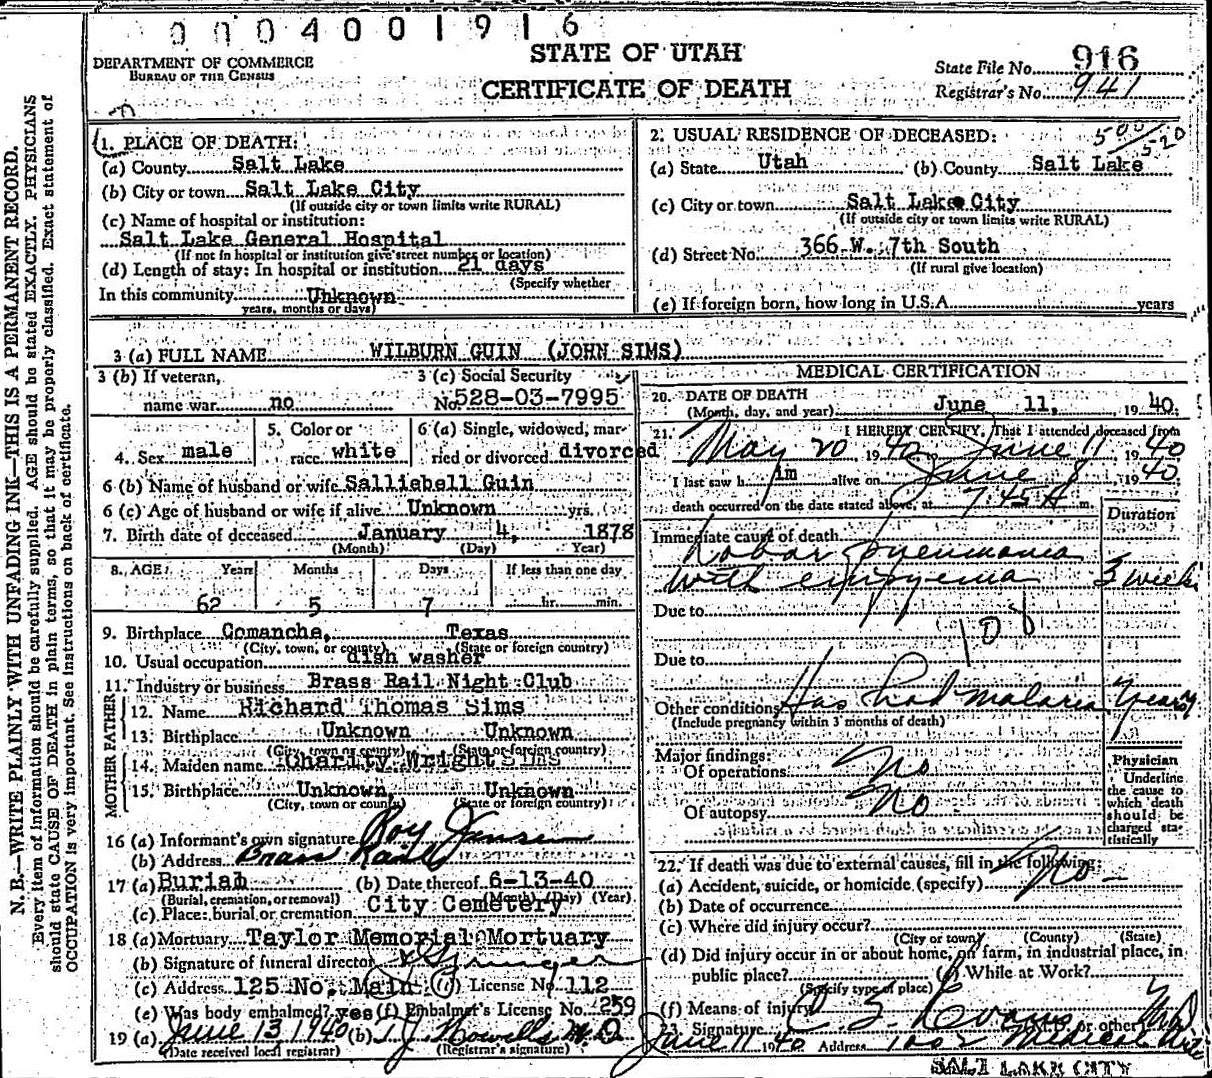 0 0 0 4 0 0 1 9 1 6
DEPARTMENT OF COMMERCE
BUREAU OF THE CENSUS
STATE OF UTAH
CERTIFICATE OF DEATH
State File No. 916
Registrar's No. 941
N. B.—WRITE PLAINLY WITH UNFADING INK—THIS IS A PERMANENT RECORD.
Every item of information should be carefully supplied. AGE should be stated EXACTLY. PHYSICIANS
should state CAUSE OF DEATH in plain terms, so that it may be properly classified. Exact statement of
OCCUPATION is very important. See instructions on back of certificate.
1. PLACE OF DEATH:
(a) County Salt Lake
(b) City or town Salt Lake City
(If outside city or town limits write RURAL)
(c) Name of hospital or institution:
Salt Lake General Hospital
(If not in hospital or institution give street number or location)
(d) Length of stay: In hospital or institution 21 days
(Specify whether
In this community Unknown
years, months or days)
2. USUAL RESIDENCE OF DECEASED:
(a) State Utah (b) County Salt Lake
(c) City or town Salt Lake City
(If outside city or town limits write RURAL)
(d) Street No. 366 W. 7th South
(If rural give location)
(e) If foreign born, how long in U.S.A. years
3 (a) FULL NAME WILBURN GUIN (JOHN SIMS)
3 (b) If veteran,
name war no
3 (c) Social Security
No. 528-03-7995
4. Sex male
5. Color or
race white
6 (a) Single, widowed, mar-
ried or divorced divorced
6 (b) Name of husband or wife Salliebell Guin
6 (c) Age of husband or wife if alive Unknown yrs.
7. Birth date of deceased January 4, 1878
(Month) (Day) Year)
8. AGE: Years Months Days If less than one day
62 5 7 hr. min.
9. Birthplace Comanche, Texas
(City, town, or county) (State or foreign country)
10. Usual occupation dish washer
11. Industry or business Brass Rail Night Club
FATHER
12. Name Richard Thomas Sims
13. Birthplace Unknown Unknown
(City, town or county) (State or foreign country)
MOTHER
14. Maiden name Charity Wright Sims
15. Birthplace Unknown, Unknown
(City, town or county) (State or foreign country)
16 (a) Informant's own signature Roy
(b) Address Brass Rail
17 (a) Burial (b) Date thereof 6-13-40
(Burial, cremation, or removal) (Month) (Day) (Year)
(c) Place: burial or cremation City Cemetery
18 (a) Mortuary Taylor Memorial Mortuary
(b) Signature of funeral director
(c) Address 125 No. Main (d) License No. 112
(e) Was body embalmed? yes (f) Embalmer's License No. 259
19 (a) June 13, 1940 (b) T. J. Howells M.D.
(Date received local registrar) (Registrar's signature)
MEDICAL CERTIFICATION
20. DATE OF DEATH
(Month, day, and year) June 11, 1940
21. I HEREBY CERTIFY, That I attended deceased from
May 20 1940 to June 11 1940
I last saw h im alive on June 8 1940,
death occurred on the date stated above, at 7 45 A m.
Duration
Immediate cause of death
Lobar pneumonia
with empyema 3 weeks
Due to
108
Due to
Other conditions Has had malaria years
(Include pregnancy within 3 months of death)
Major findings:
Of operations No
Of autopsy No
Physician
Underline
the cause to
which death
should be
charged sta-
tistically
22. If death was due to external causes, fill in the following:
(a) Accident, suicide, or homicide (specify) No
(b) Date of occurrence
(c) Where did injury occur?
(City or town) (County) (State)
(d) Did injury occur in or about home, on farm, in industrial place, in
public place? (e) While at Work?
(Specify type of place)
(f) Means of injury
23. Signature C. S. Evans M.D. or other
June 11 1940 Address 1002 Medical Arts
SALT LAKE CITY